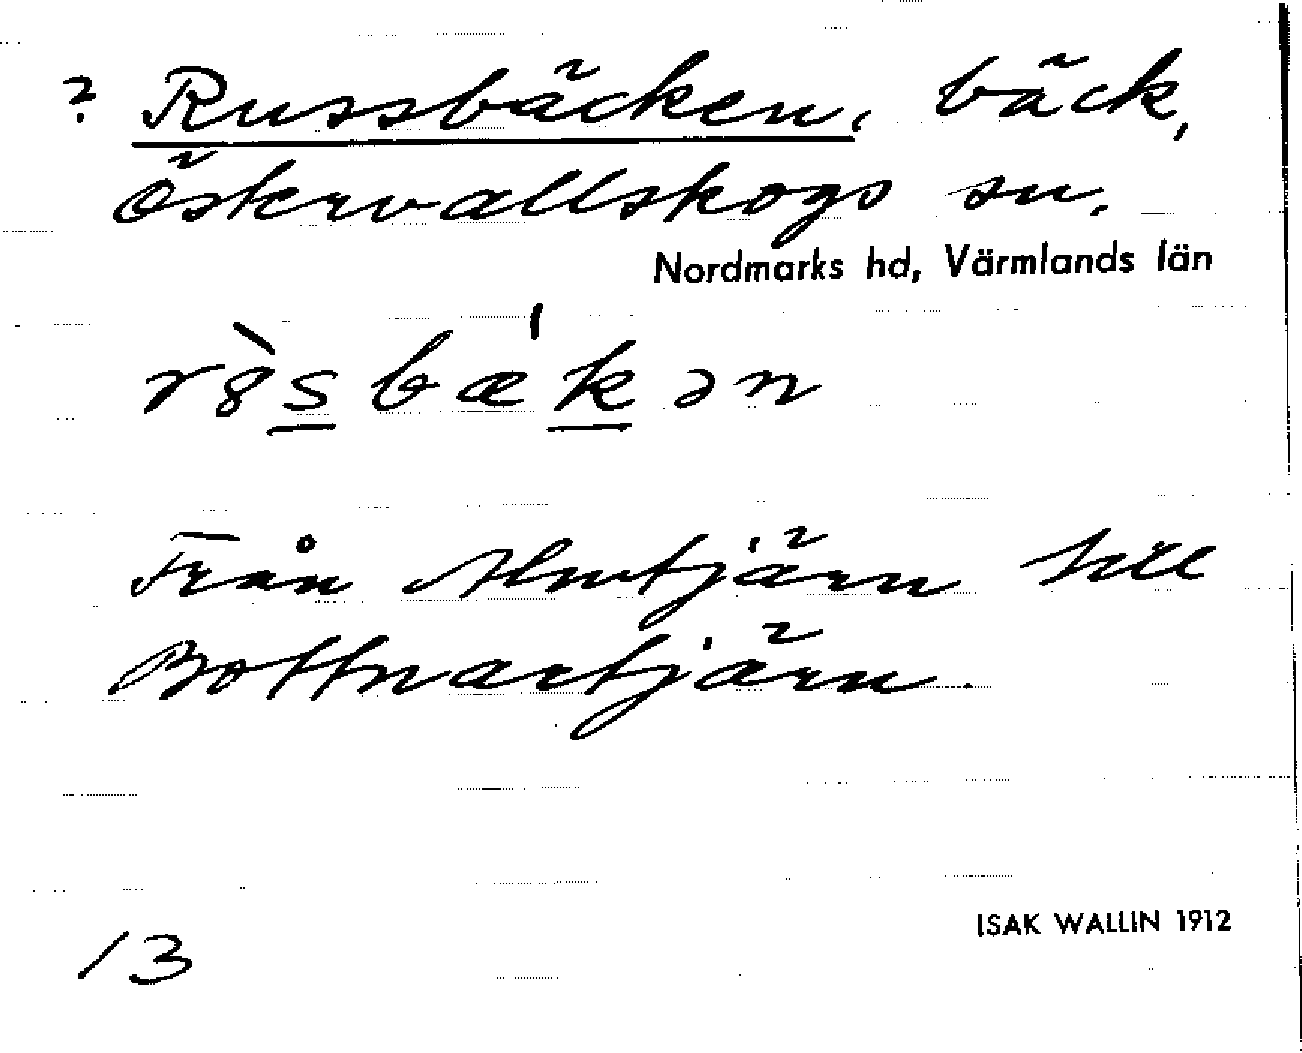 ? Russbäcken, bäck,
Östervallskogs sn.
Nordmarks hd, Värmlands län
r8̀sbæ'kən
Från Almtjärn till
Bottnartjärn.
ISAK WALLIN 1912
13